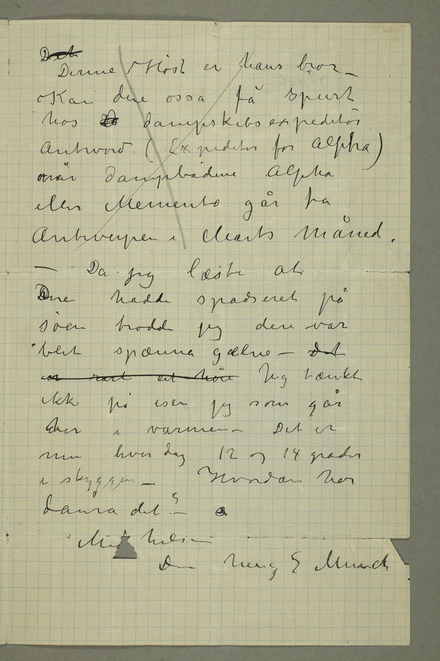 Denne Höst er hans bror –
Kan due ossa få spurt
hos dampskibsexpeditör
(Expeditör for Alpha)
når dampbådene Alpha
eller Memento går fra
Antwerpen i Marts Måned.
– Da jeg læste at
Dere hadde spadseret på
söen trodde jeg dere var
blet spænna gælne – Det
er rart at höre Jeg tænkte
ikke på isen jeg som går
her i varmen – Det er
nu hver dag 12 og 14 grader
i skyggen – Hvordan har
Laura det? –
Med hilsen
Din heng E Munch